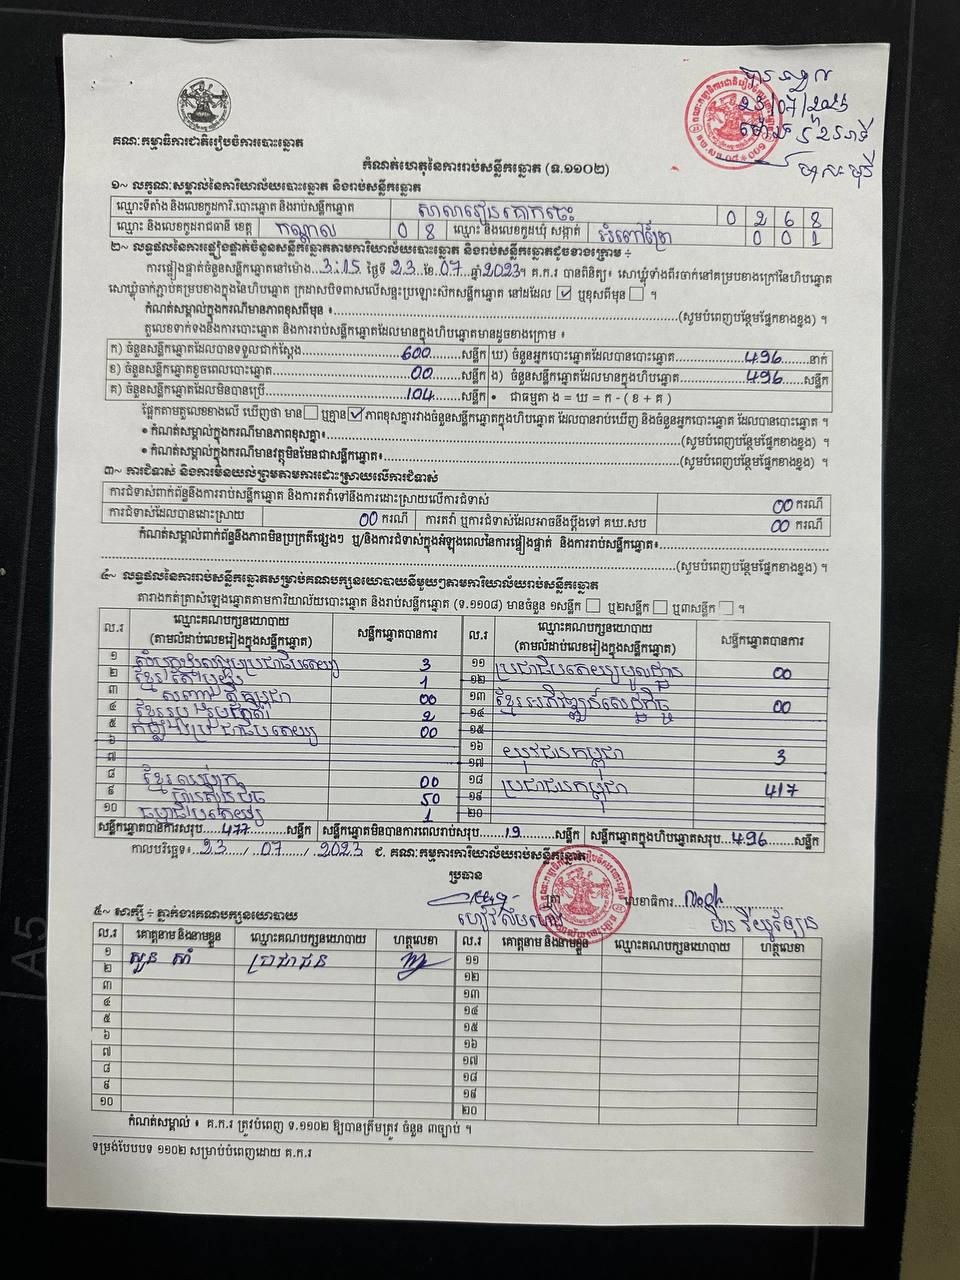 បានឃើញ
23/07/2023
គណៈកម្មាធិការជាតិរៀបចំការបោះឆ្នោត
កំណត់ហេតុនៃការរាប់សន្លឹកឆ្នោត (ទ.១១០២)
១~ លក្ខណៈសម្គាល់នៃការិយាល័យបោះឆ្នោត និងរាប់សន្លឹកឆ្នោត
ឈ្មោះទីតាំង និងលេខកូដការិ.បោះឆ្នោត និងរាប់សន្លឹកឆ្នោត សាលារៀនគោកចេះ 0 2 6 8
ឈ្មោះ និងលេខកូដរាជធានី ខេត្ត កណ្តាល 0 8 ឈ្មោះ និងលេខកូដឃុំ សង្កាត់ អំពៅព្រៃ 0 0 1
២~ លទ្ធផលនៃការផ្ទៀងផ្ទាត់ចំនួនសន្លឹកឆ្នោតតាមការិយាល័យបោះឆ្នោត និងរាប់សន្លឹកឆ្នោតដូចខាងក្រោម ÷
ការផ្ទៀងផ្ទាត់ចំនួនសន្លឹកឆ្នោតនៅម៉ោង...3:15 ថ្ងៃទី 23.ខែ.07.ឆ្នាំ2023។ គ.ក.រ បានពិនិត្យ៖ សោឃ្លុំទាំងពីរចាក់នៅគម្របខាងក្រៅនៃហិបឆ្នោត
សោឃ្លុំចាក់ភ្ជាប់គម្របខាងក្នុងនៃហិបឆ្នោត ក្រដាសបិទពាសលើសន្ទះប្រឡោះសិកសន្លឹកឆ្នោត នៅដដែល ☑ ឬខុសពីមុន ☐ ។
កំណត់សម្គាល់ក្នុងករណីមានភាពខុសពីមុន ៖......(សូមបំពេញបន្ថែមផ្នែកខាងខ្នង) ។
តួលេខទាក់ទងនឹងការបោះឆ្នោត និងការរាប់សន្លឹកឆ្នោតដែលមានក្នុងហិបឆ្នោតមានដូចខាងក្រោម ៖
ក) ចំនួនសន្លឹកឆ្នោតដែលបានទទួលជាក់ស្តែង......600......សន្លឹក ឃ) ចំនួនអ្នកបោះឆ្នោតដែលបានបោះឆ្នោត......496......នាក់
ខ) ចំនួនសន្លឹកឆ្នោតខូចពេលបោះឆ្នោត......00......សន្លឹក ង) ចំនួនសន្លឹកឆ្នោតដែលមានក្នុងហិបឆ្នោត......496......សន្លឹក
គ) ចំនួនសន្លឹកឆ្នោតដែលមិនបានប្រើ......104......សន្លឹក • ជាធម្មតា ង = ឃ = ក - ( ខ + គ )
ផ្អែកតាមតួលេខខាងលើ ឃើញថា មាន ☐ ឬគ្មាន ☑ ភាពខុសគ្នារវាងចំនួនសន្លឹកឆ្នោតក្នុងហិបឆ្នោត ដែលបានរាប់ឃើញ និងចំនួនអ្នកបោះឆ្នោត ដែលបានបោះឆ្នោត ។
• កំណត់សម្គាល់ក្នុងករណីមានភាពខុសគ្នា៖......(សូមបំពេញបន្ថែមផ្នែកខាងខ្នង) ។
• កំណត់សម្គាល់ក្នុងករណីមានវត្ថុមិនមែនជាសន្លឹកឆ្នោត៖......(សូមបំពេញបន្ថែមផ្នែកខាងខ្នង) ។
៣~ ការជំទាស់ និងការមិនយល់ព្រមតាមការដោះស្រាយលើការជំទាស់
ការជំទាស់ពាក់ព័ន្ធនឹងការរាប់សន្លឹកឆ្នោត និងការតវ៉ាទៅនឹងការដោះស្រាយលើការជំទាស់ 00 ករណី
ការជំទាស់ដែលបានដោះស្រាយ 00 ករណី ការតវ៉ា ឬការជំទាស់ដែលអាចនឹងប្តឹងទៅ គឃ.សប 00 ករណី
កំណត់សម្គាល់ពាក់ព័ន្ធនឹងភាពមិនប្រក្រតីផ្សេងៗ ឬ/និងការជំទាស់ក្នុងអំឡុងពេលនៃការផ្ទៀងផ្ទាត់ និងការរាប់សន្លឹកឆ្នោត៖......
......(សូមបំពេញបន្ថែមផ្នែកខាងខ្នង) ។
៤~ លទ្ធផលនៃការរាប់សន្លឹកឆ្នោតសម្រាប់គណបក្សនយោបាយនីមួយៗតាមការិយាល័យរាប់សន្លឹកឆ្នោត
តារាងកត់ត្រាសំឡេងឆ្នោតតាមការិយាល័យបោះឆ្នោត និងរាប់សន្លឹកឆ្នោត (ទ.១១០៨) មានចំនួន ១សន្លឹក ☐ ឬ២សន្លឹក ☐ ឬ៣សន្លឹក ☐ ។
ល.រ ឈ្មោះគណបក្សនយោបាយ (តាមលំដាប់លេខរៀងក្នុងសន្លឹកឆ្នោត) សន្លឹកឆ្នោតបានការ ល.រ ឈ្មោះគណបក្សនយោបាយ (តាមលំដាប់លេខរៀងក្នុងសន្លឹកឆ្នោត) សន្លឹកឆ្នោតបានការ
១ សំបុកឃ្មុំសង្គមប្រជាធិបតេយ្យ 3 ១១ ប្រជាធិបតេយ្យមូលដ្ឋាន 00
២ ខ្មែរតែមួយ 1 ១២
៣ 00 ១៣ ខ្មែរអភិវឌ្ឍន៍សេដ្ឋកិច្ច 00
៤ ខ្មែររួបរួមជាតិ 2 ១៤
៥ កម្លាំងប្រជាធិបតេយ្យ 00 ១៥
៦ ១៦ យុវជនកម្ពុជា 3
៧ ១៧
៨ ខ្មែរឈប់ក្រ 00 ១៨ ប្រជាជនកម្ពុជា 417
៩ ហ្វ៊ុនស៊ិនប៉ិច 50 ១៩
១០ ធម្មាធិបតេយ្យ 1 ២០
សន្លឹកឆ្នោតបានការសរុប......477......សន្លឹក សន្លឹកឆ្នោតមិនបានការពេលរាប់សរុប......19......សន្លឹក សន្លឹកឆ្នោតក្នុងហិបឆ្នោតសរុប...496......សន្លឹក
កាលបរិច្ឆេទ៖ 23 / 07 / 2023 ជ. គណៈកម្មការការិយាល័យរាប់សន្លឹកឆ្នោត
ប្រធាន
លេខាធិការ
៥~ សាក្សី ÷ ភ្នាក់ងារគណបក្សនយោបាយ
ល.រ គោត្តនាម និងនាមខ្លួន ឈ្មោះគណបក្សនយោបាយ ហត្ថលេខា ល.រ គោត្តនាម និងនាមខ្លួន ឈ្មោះគណបក្សនយោបាយ ហត្ថលេខា
១ សួន សាំ ប្រជាជន ១១
២ ១២
៣ ១៣
៤ ១៤
៥ ១៥
៦ ១៦
៧ ១៧
៨ ១៨
៩ ១៩
១០ ២០
កំណត់សម្គាល់ ៖ គ.ក.រ ត្រូវបំពេញ ទ.១១០២ ឱ្យបានត្រឹមត្រូវ ចំនួន ៣ច្បាប់ ។
ទម្រង់បែបបទ ១១០២ សម្រាប់បំពេញដោយ គ.ក.រ
A5